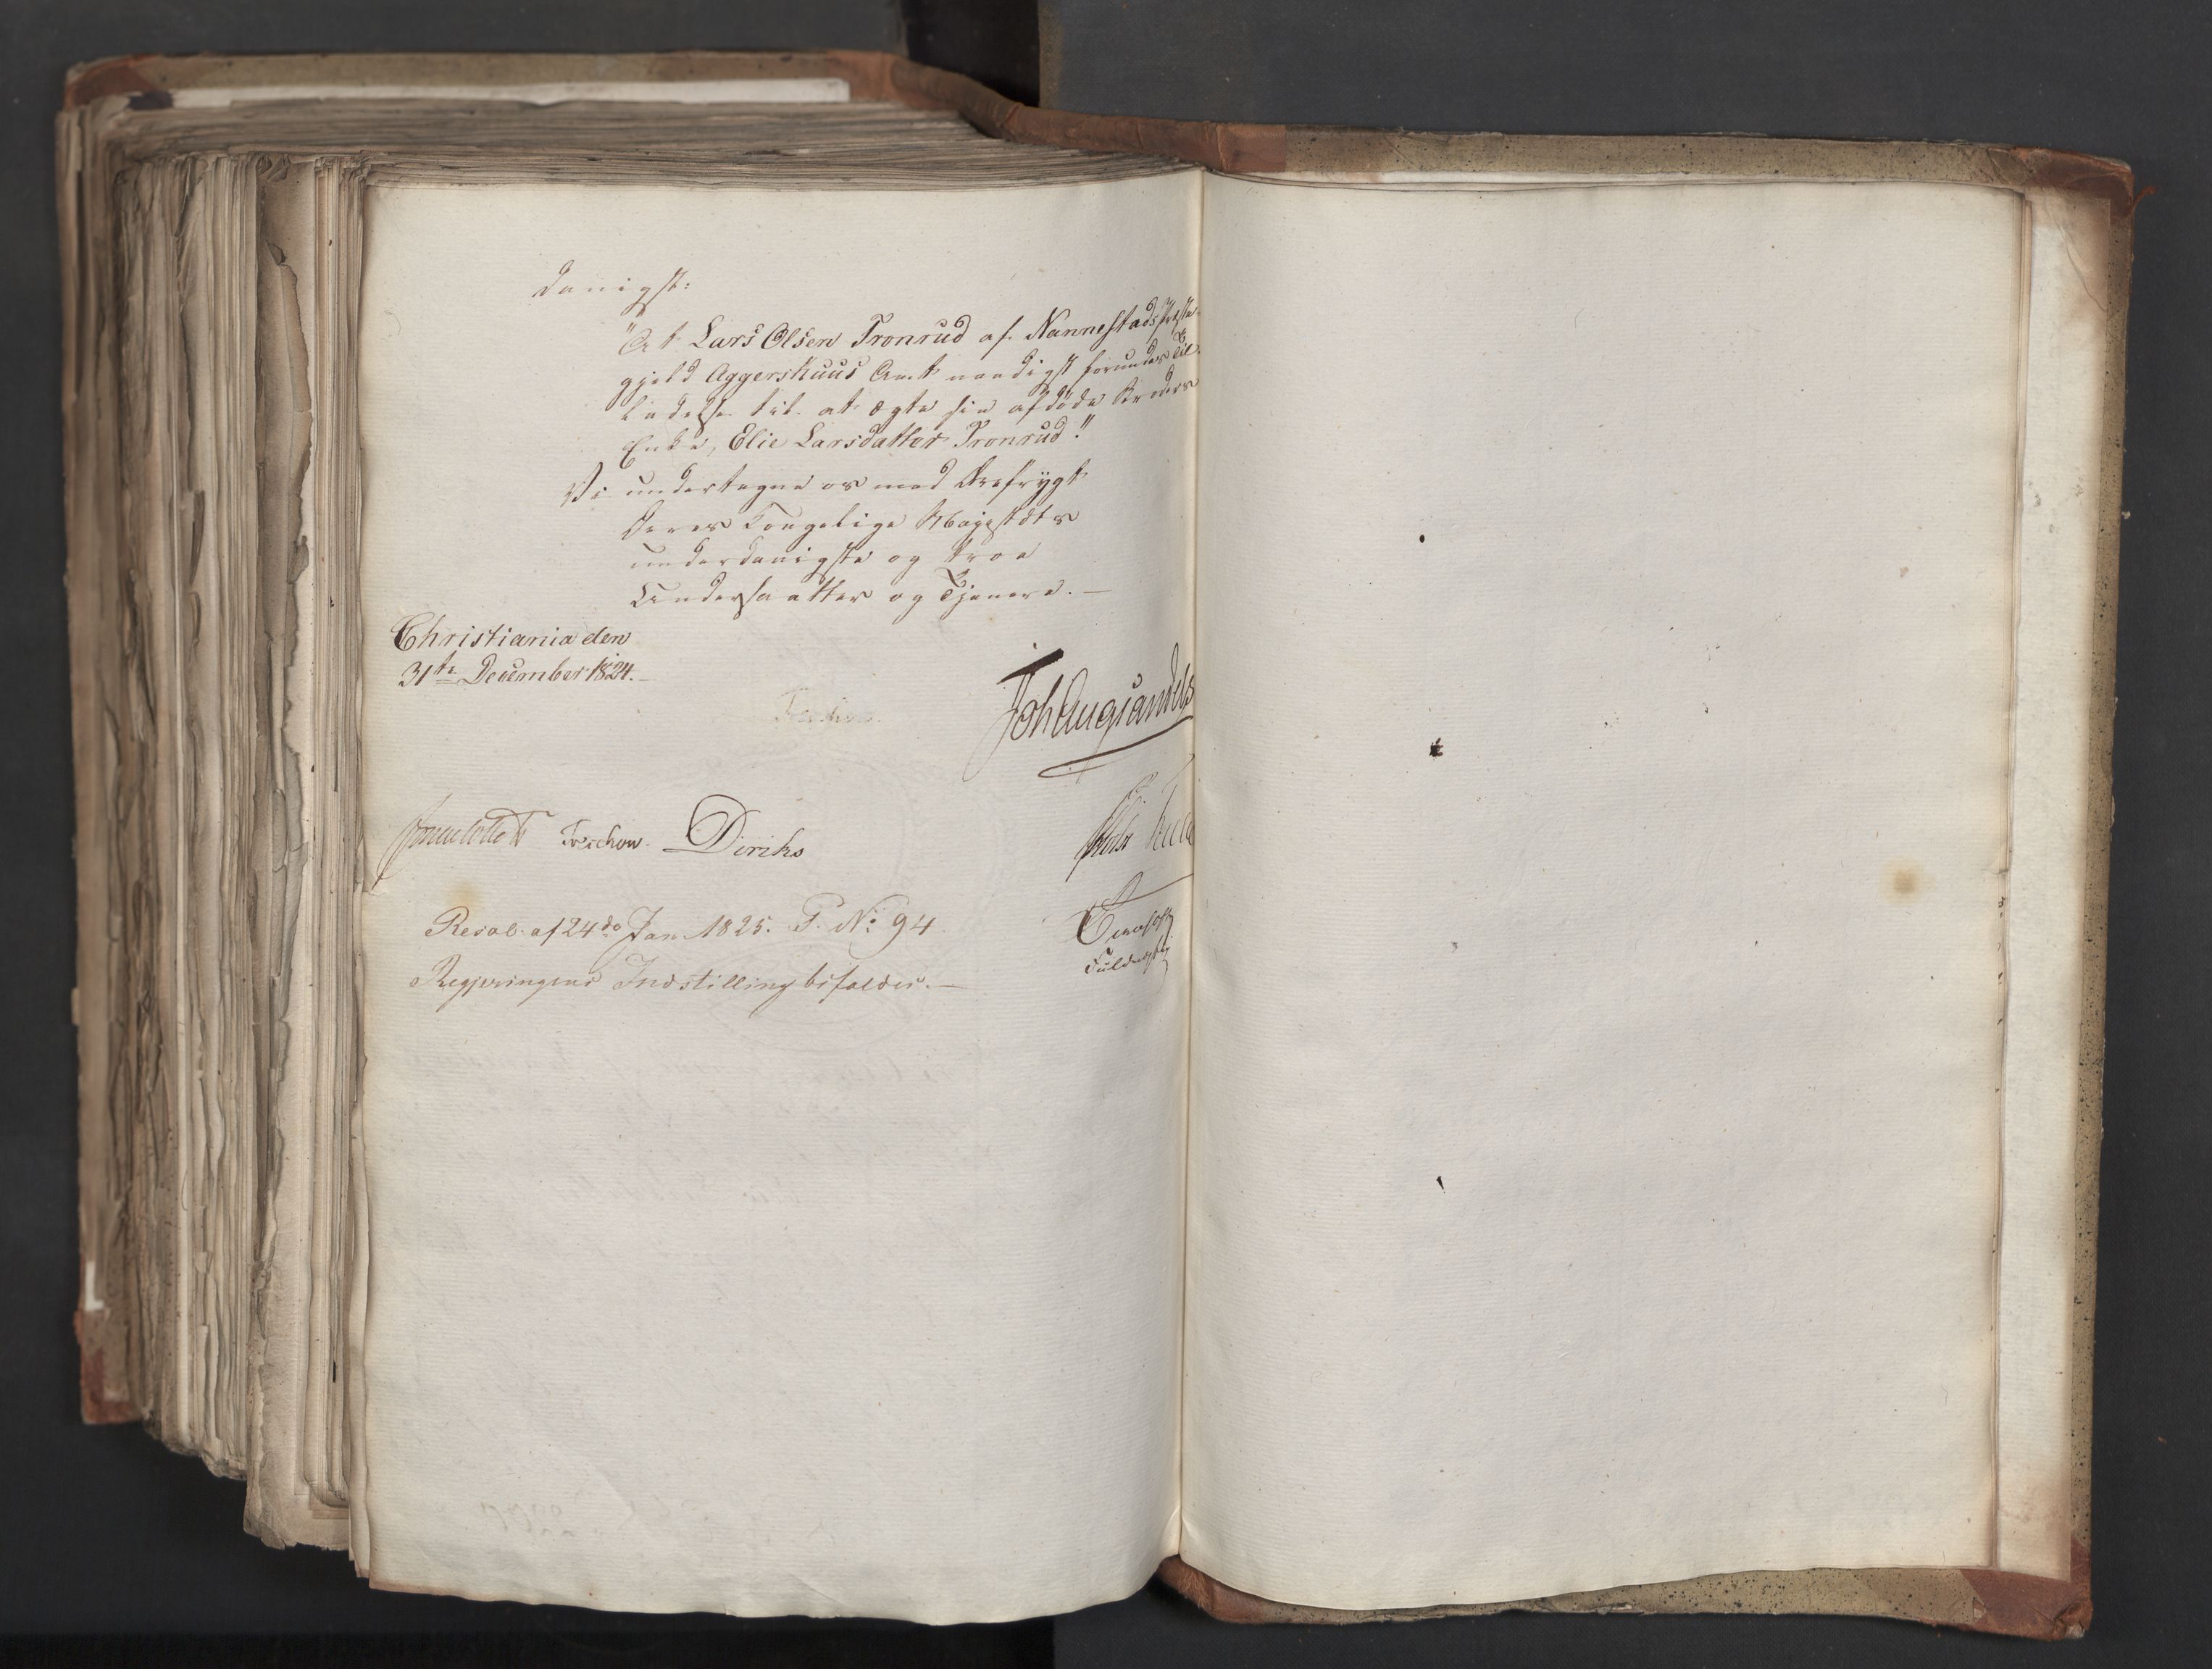 danigst:
"At Lars Olsen Tronrud af Nannestads Præste-
gjeld Aggershuus Amt naadigst forundes Til-
ladelse til at ægte sin afdøde Broders
Enke, Elie Larsdatter Tronrud."
Vi undertegne os med Ærefrygt
Deres Kongelige Majestæts
underdanigste og troe
Undersaatter og Tjenere.—
Christiania den
31te December 1824.—
Treschow.
Joh Aug Sandels
Treschow. Diriks
Resol: af 24de Jan. 1825. P. No 94
Regjeringens Indstilling bifaldes.—